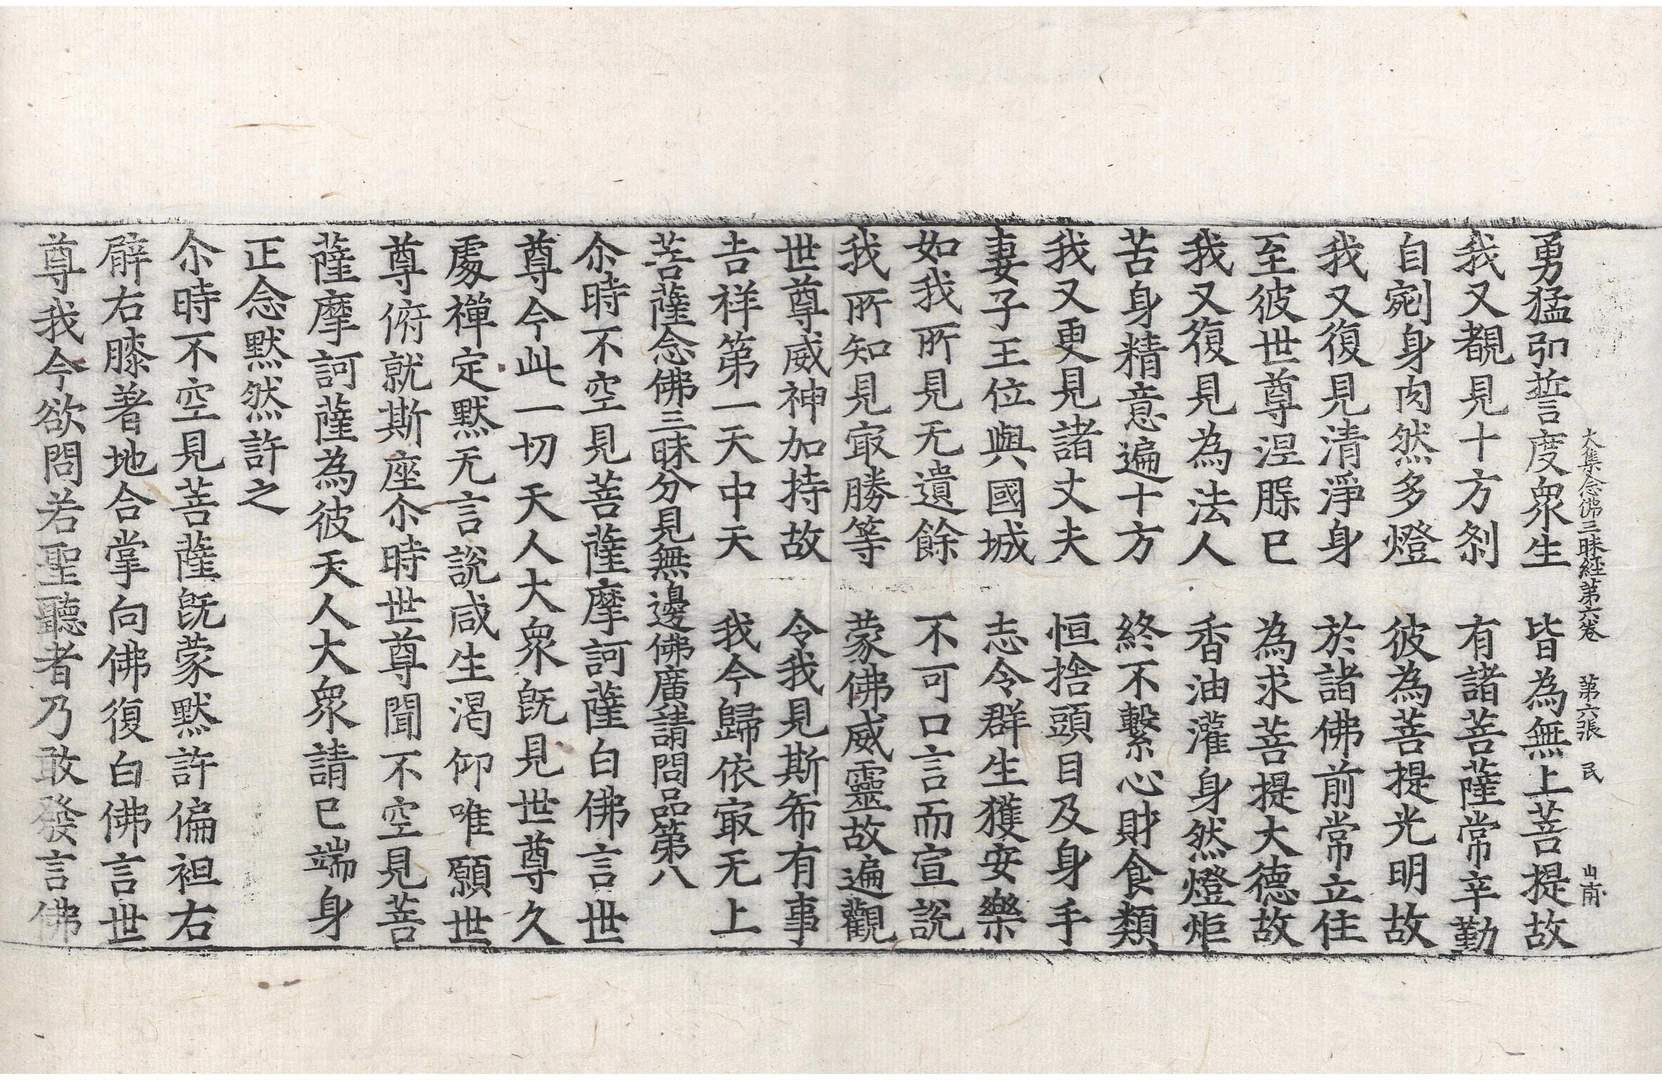 大集念佛三昧経第六卷 第六張 民 山甫
勇猛弘誓度衆生 皆為無上菩提故
我又覩見十方刹 有諸菩薩常辛勤
自剜身肉然多燈 彼為菩提光明故
我又復見清淨身 於諸佛前常立住
至彼世尊涅槃已 為求菩提大德故
我又復見為法人 香油灌身然燈炬
苦身精意遍十方 終不繫心財食類
我又更見諸丈夫 恒捨頭目及身手
妻子王位與國城 志令群生獲安樂
如我所見无遺餘 不可口言而宣說
我所知見㝡勝等 蒙佛威靈故遍觀
世尊威神加持故 令我見斯希有事
吉祥第一天中天 我今歸依㝡无上
菩薩念佛三昧分見無邊佛廣請問品第八
尒時不空見菩薩摩訶薩白佛言世
尊今此一切天人大衆旣見世尊久
處禪定默无言說咸生渴仰唯願世
尊俯就斯座尒時世尊聞不空見菩
薩摩訶薩為彼天人大衆請已端身
正念默然許之
尒時不空見菩薩旣蒙默許偏袒右
臂右膝著地合掌向佛復白佛言世
尊我今欲問若聖聽者乃敢發言佛